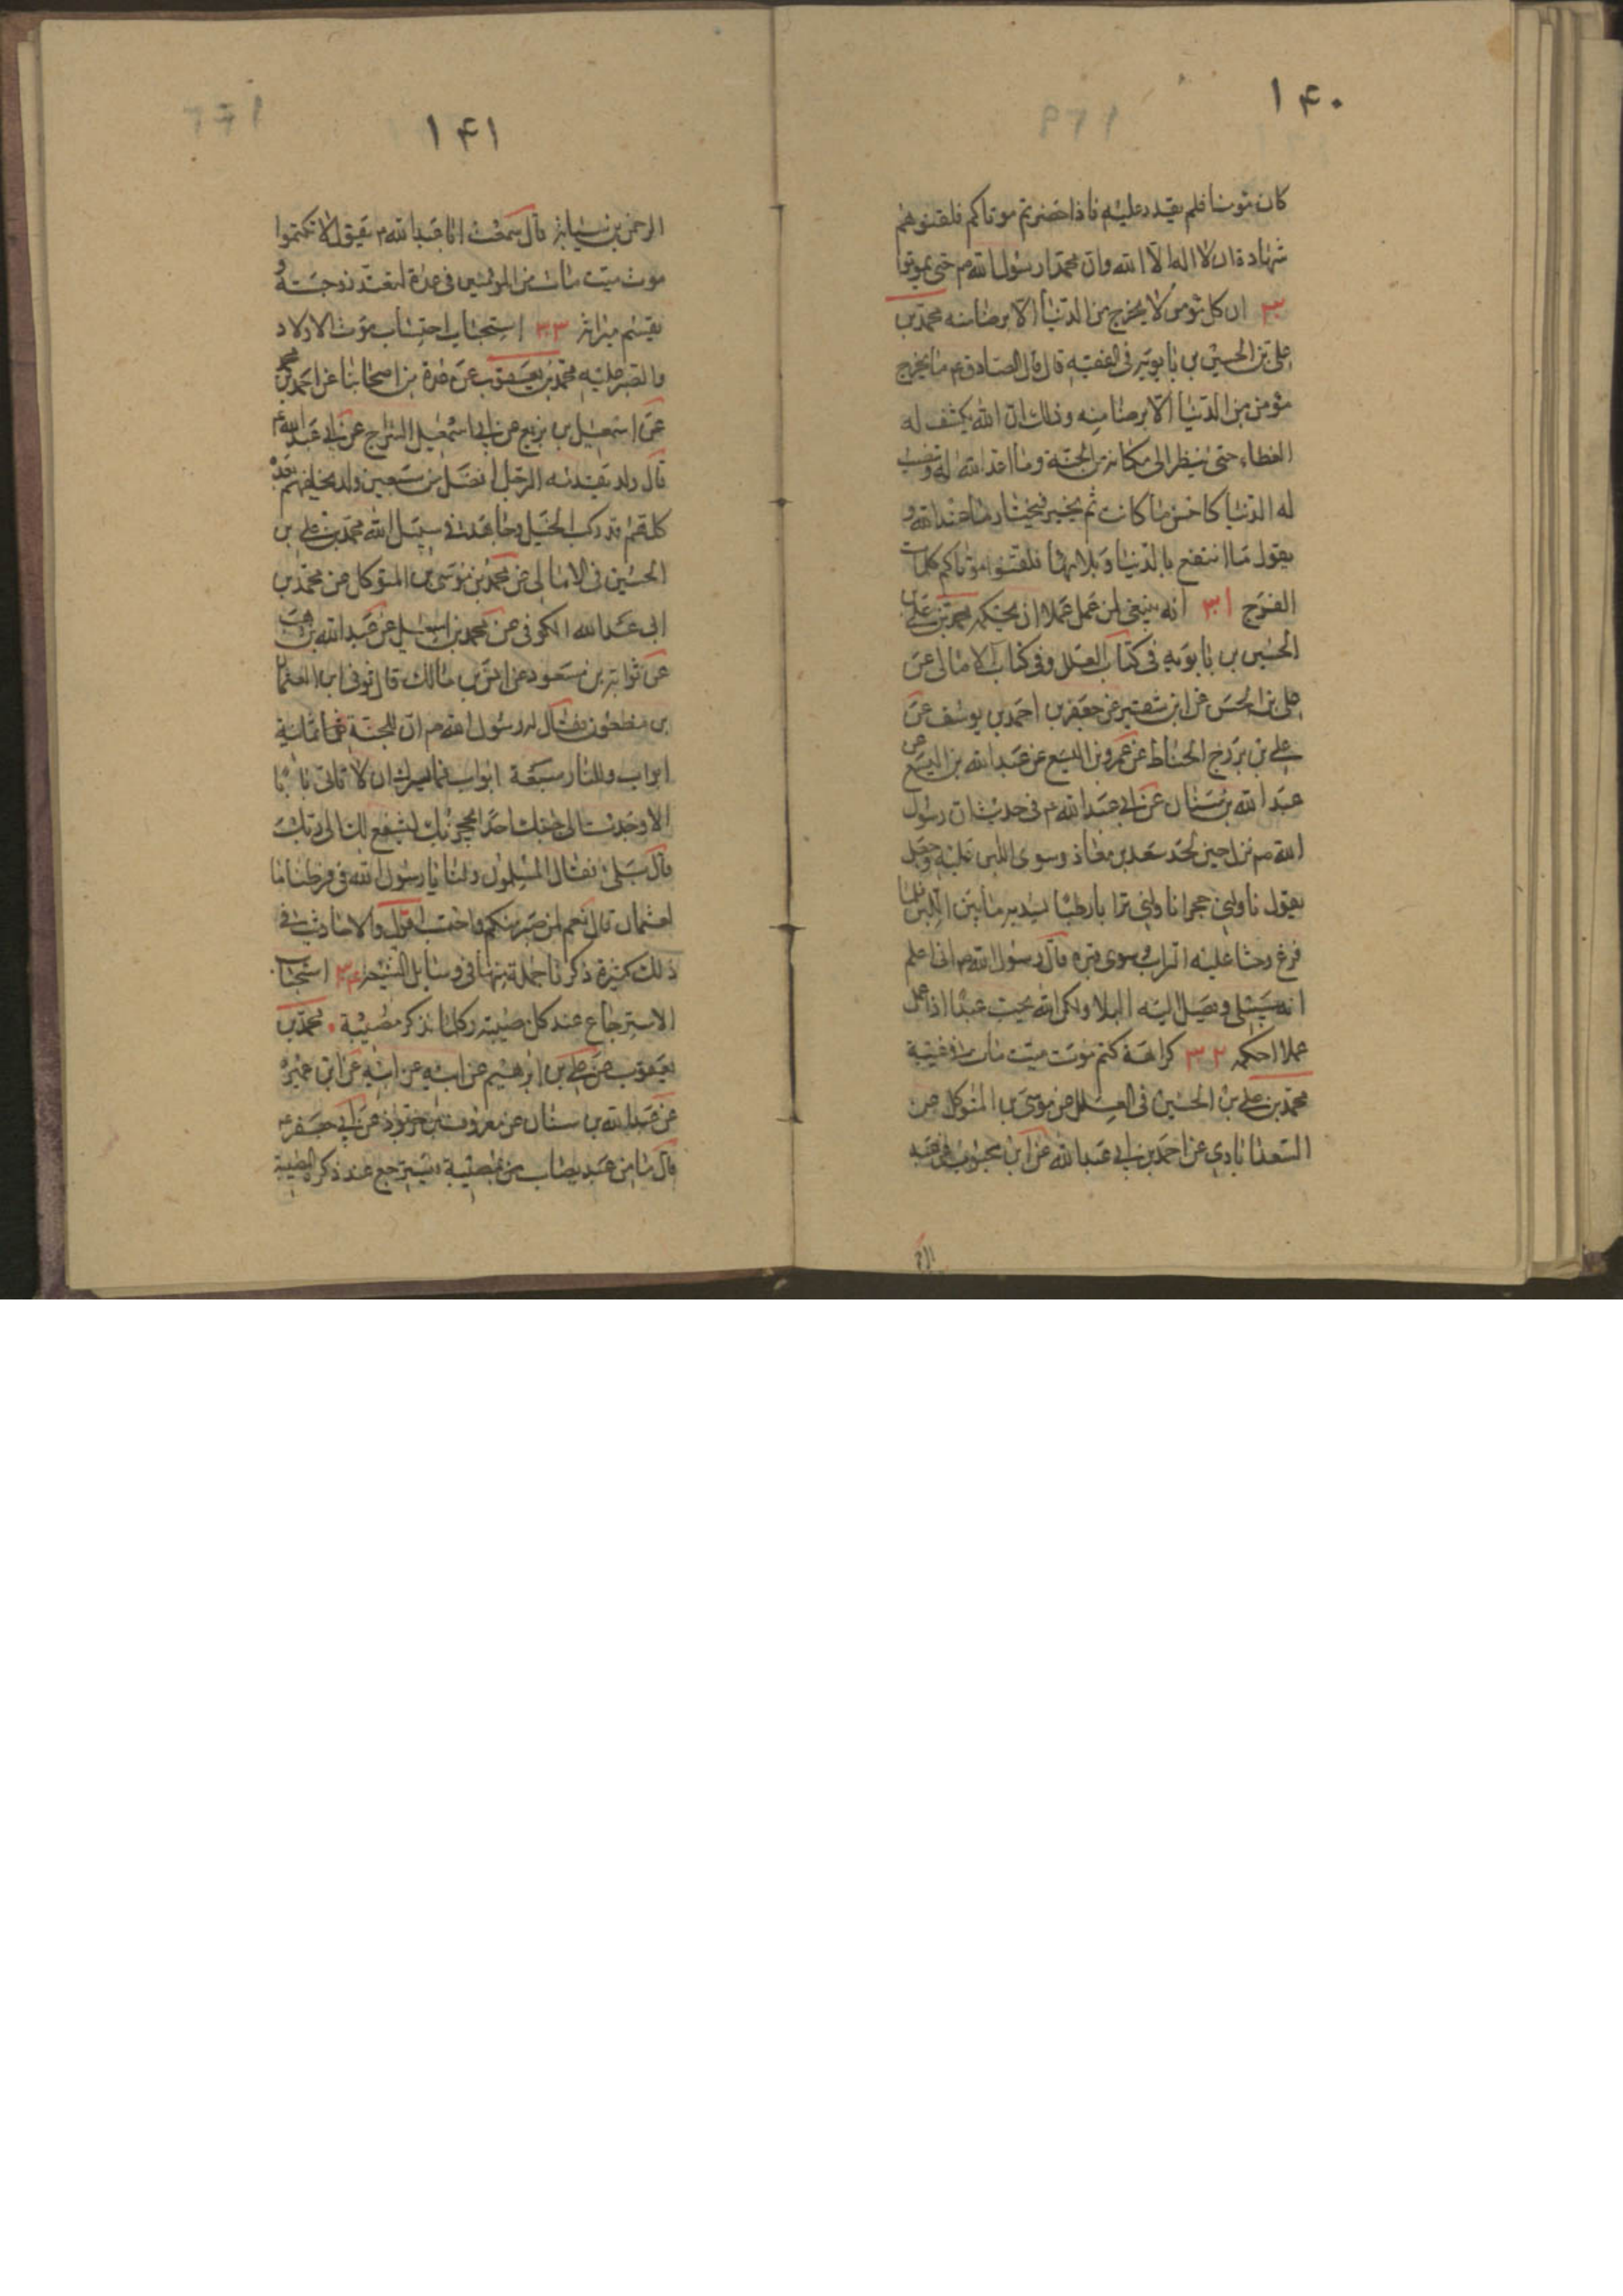 ۱۴۰
كان مؤمنا فلم يقدر عليه فاذا حضرتم موتاكم فلقنوهم
شهادة ان لا اله الا الله وان محمدا رسول الله ص حتى يموتوا
ان كل مؤمن لا يخرج من الدنيا الا برضا منه محمد بن
على بن الحسين بن بابويه فى الفقيه قال قال الصادق ع ما يخرج
مؤمن من الدنيا الا برضا منه وذلك ان الله يكشف له
الغطاء حتى ينظر الى مكانه من الجنة وما اعد الله له وتنصب
له الدنيا كاحسن ما كانت ثم يخير فيختار ما عند الله و
يقول ما اصنع بالدنيا وبلائها فلقنوا موتاكم كلمات
الفرج ۳۱ انه ينبغى لمن عمل عملا ان يحكمه محمد بن على بن
الحسين بن بابويه فى كتاب العلل وفى كتاب الامالى عن
على بن الحسن عن ابن شقير عن جعفر بن احمد بن يوسف عن
على بن بزرج الحناط عن عمرو بن اليسع عن عبد الله بن اليسع عن
عبد الله بن سنان عن ابى عبد الله ع فى حديث ان رسول
الله ص نزل حين لحد سعد بن معاذ وسوى اللبن عليه وجعل
يقول ناولنى حجرا ناولنى ترابا رطبا يسد به ما بين اللبن فلما
فرغ وحثا عليه التراب وسوى قبره قال رسول الله ص انى اعلم
انه سيبلى ويصل اليه البلا ولكن الله يحب عبدا اذا عمل
عملا احكمه ۳۲ كراهة كتم موت ميت مات فى غيبة
محمد بن على بن الحسين فى العلل عن موسى بن المتوكل عن
السعدابادى عن احمد بن ابى عبد الله عن ابن محبوب عن عبد
۱۴۱
الرحمن بن سيابة قال سمعت ابا عبد الله ع يقول لا تكتموا
موت ميت مات من المؤمنين فى غيبته لتعتد زوجته و
يقسم ميراثه ۳۳ استحباب احتساب موت الاولاد
والصبر عليه محمد بن يعقوب عن عدة من اصحابنا عن احمد بن محمد
عن اسمعيل بن بزيع عن ابى اسمعيل السراج عن ابى عبد الله ع
قال ولد يقدمه الرجل افضل من سبعين ولد يخلفهم بعده
كلهم قد ركب الخيل وجاهدت فى سبيل الله محمد بن على بن
الحسين فى الامالى عن محمد بن موسى بن المتوكل عن محمد بن
ابى عبد الله الكوفى عن محمد بن اسمعيل عن عبد الله بن وهب
عن ثوابة بن مسعود عن انس بن مالك قال توفى ابن لعثمان
بن مظعون فقال له رسول الله ص ان للجنة ثمانية
ابواب وللنار سبعة ابواب فما يسرك ان لا تاتى بابا
الا وجدت الى جنبك احدا بحجزتك ليشفع لك الى ربك
قال بلى فقال المسلمون ولنا يا رسول الله فى فرطنا ما
لعثمان قال نعم لمن صبر منكم واحتسب اقول والاحاديث فى
ذلك كثيرة ذكرنا جملة منها فى وسائل الشيعة ۳۴ استحباب
الاسترجاع عند كل مصيبة وكلما تذكر مصيبة محمد بن
يعقوب عن على بن ابرهيم عن ابيه عن ابن عميرة
عن عبد الله بن سنان عن معروف بن خربوذ عن ابى جعفر ع
قال ما من عبد يصاب بمصيبة فيسترجع عند ذكره المصيبة